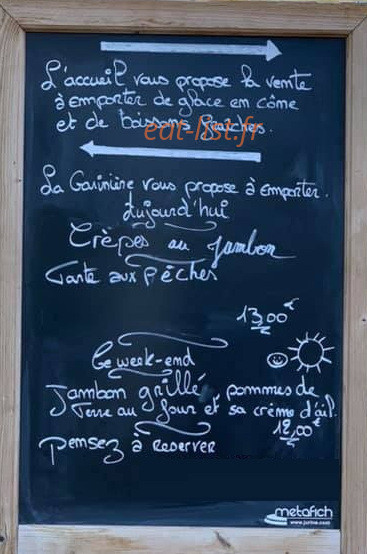 L'accueil vous propose la vente
à emporter de glace en cône
et de boissons fraîches.
eat-list.fr
La Garinière vous propose à emporter.
Aujourd'hui
Crèpes au jambon
Tarte aux pêches
13,00€
Ce week-end
Jambon grillé, pommes de
Terre au four et sa crème d'ail.
12,00€
Pensez à RESERVER
metafich
www.jorine.com